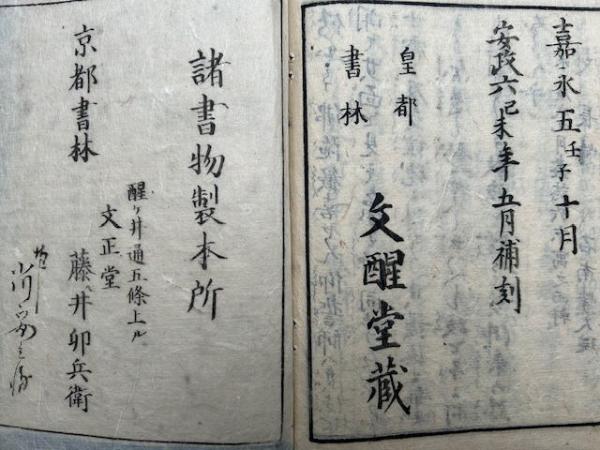 嘉永五壬子十月
安政六己未年五月補刻
皇都
書林
文醒堂蔵
諸書物製本所
醒ヶ井通五條上ル
文正堂
京都書林
藤井卯兵衛